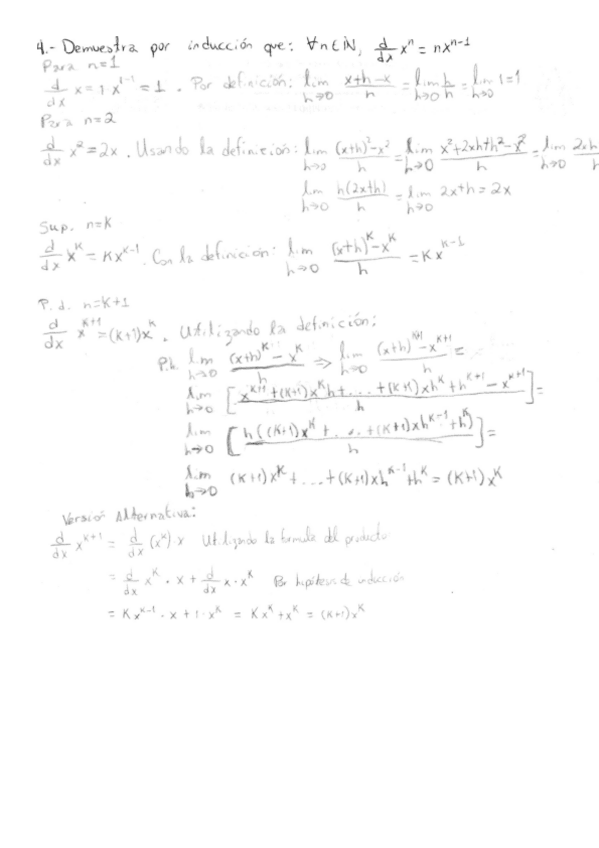 4.- Demuestra por inducción que: ∀n∈ℕ, d/dx x^n = nx^(n-1)
Para n=1
d/dx x = 1·x^(1-1) = 1. Por definición: lim h→0 (x+h-x)/h = lim h→0 h/h = lim h→0 1=1
Para n=2
d/dx x² = 2x. Usando la definición: lim h→0 ((x+h)²-x²)/h = lim h→0 (x²+2xh+h²-x²)/h = lim h→0 2xh/h
lim h→0 h(2x+h)/h = lim h→0 2x+h = 2x
Sup. n=K
d/dx x^K = Kx^(K-1). Con la definición: lim h→0 ((x+h)^K-x^K)/h = Kx^(K-1)
P.d. n=K+1
d/dx x^(K+1) = (K+1)x^K. Utilizando la definición:
P.h. lim h→0 ((x+h)^K - x^K)/h ⇒ lim h→0 ((x+h)^(K+1) - x^(K+1))/h =
lim h→0 [(x^(K+1)+(K+1)x^K h+...+(K+1)xh^K+h^(K+1)-x^(K+1))/h] =
lim h→0 [h((K+1)x^K+...+(K+1)xh^(K-1)+h^K)/h] =
lim h→0 (K+1)x^K+...+(K+1)xh^(K-1)+h^K = (K+1)x^K
Versión Alternativa:
d/dx x^(K+1) = d/dx (x^K) x Utilizando la formula del producto
= d/dx x^K · x + d/dx x · x^K Por hipótesis de inducción
= Kx^(K-1) · x + 1 · x^K = Kx^K + x^K = (K+1)x^K